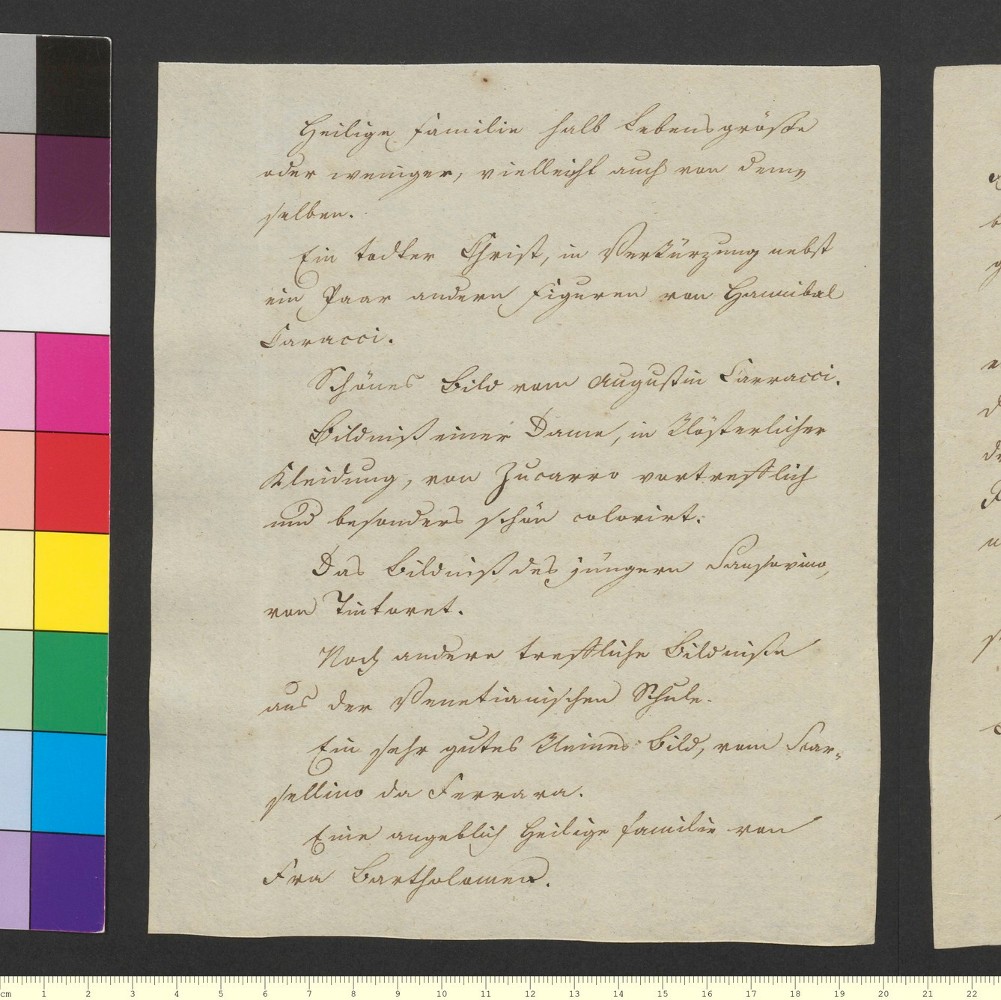 Heilige Familie halb Lebensgröße
oder weniger, vielleicht auch von dem=
selben.
Ein todter Christ, in Verkürzung nebst
ein Paar andern Figuren von Hannibal
Caracci.
Schönes Bild vom Augustin Carracci.
Bildniß einer Dame, in klösterlicher
Kleidung, von Zucarro vortrefflich
und besonders schön colorirt.
Das Bildniß des jüngern Sansovino,
von Tintoret.
Noch andere treffliche Bildniße
aus der Venetianischen Schule.
Ein sehr gutes kleines Bild, vom Scar=
sellino da Ferrara.
Eine angeblich Heilige Familie von
Fra Bartholomeo.
cm 1 2 3 4 5 6 7 8 9 10 11 12 13 14 15 16 17 18 19 20 21 22